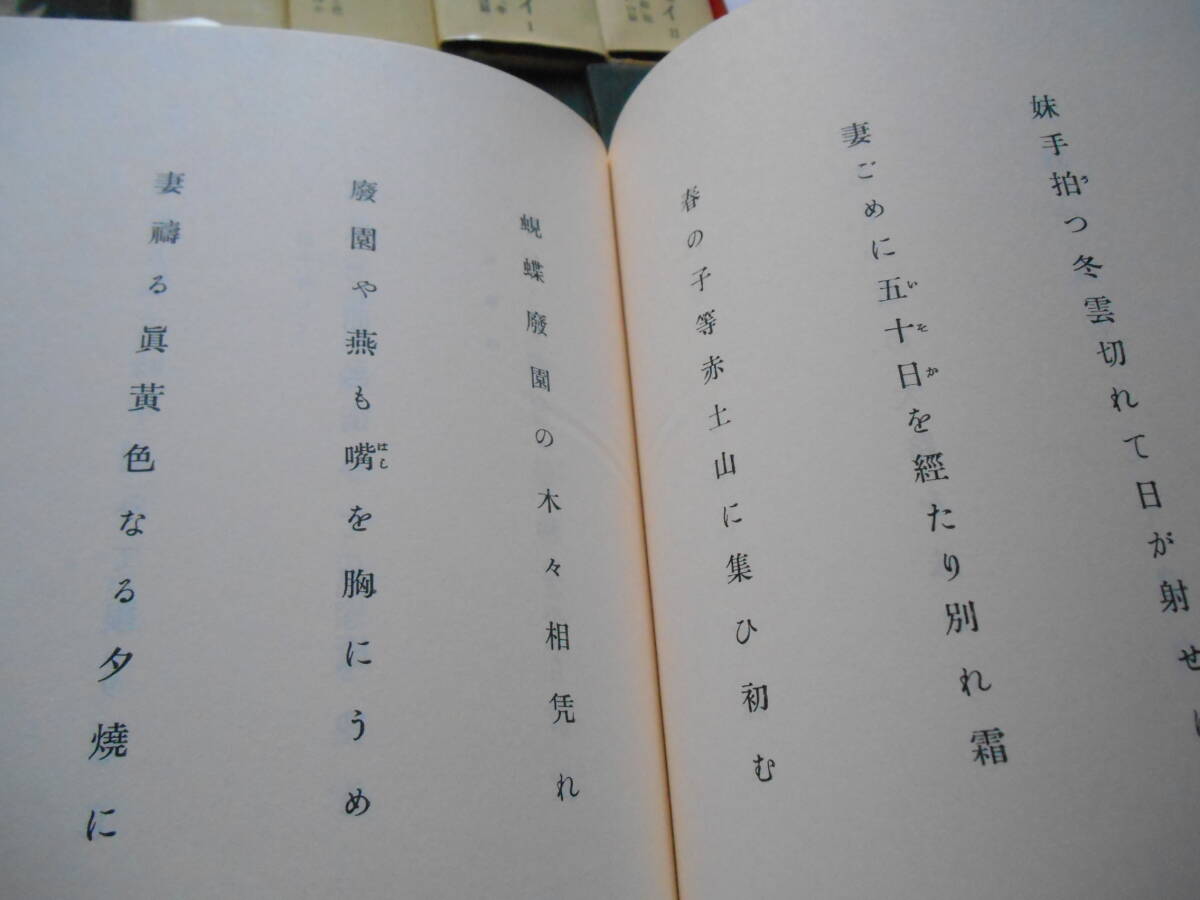 妹手拍つ冬雲切れて日が射せ
妻ごめに五十日を經たり別れ霜
春の子等赤土山に集ひ初む
蜆蝶廢園の木々相凭れ
廢園や燕も嘴を胸にうめ
妻禱る眞黃色なる夕燒に